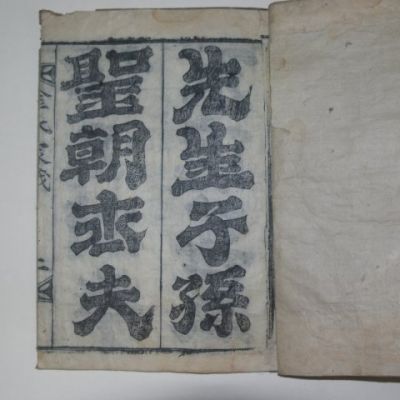 先生子孫
聖朝士夫